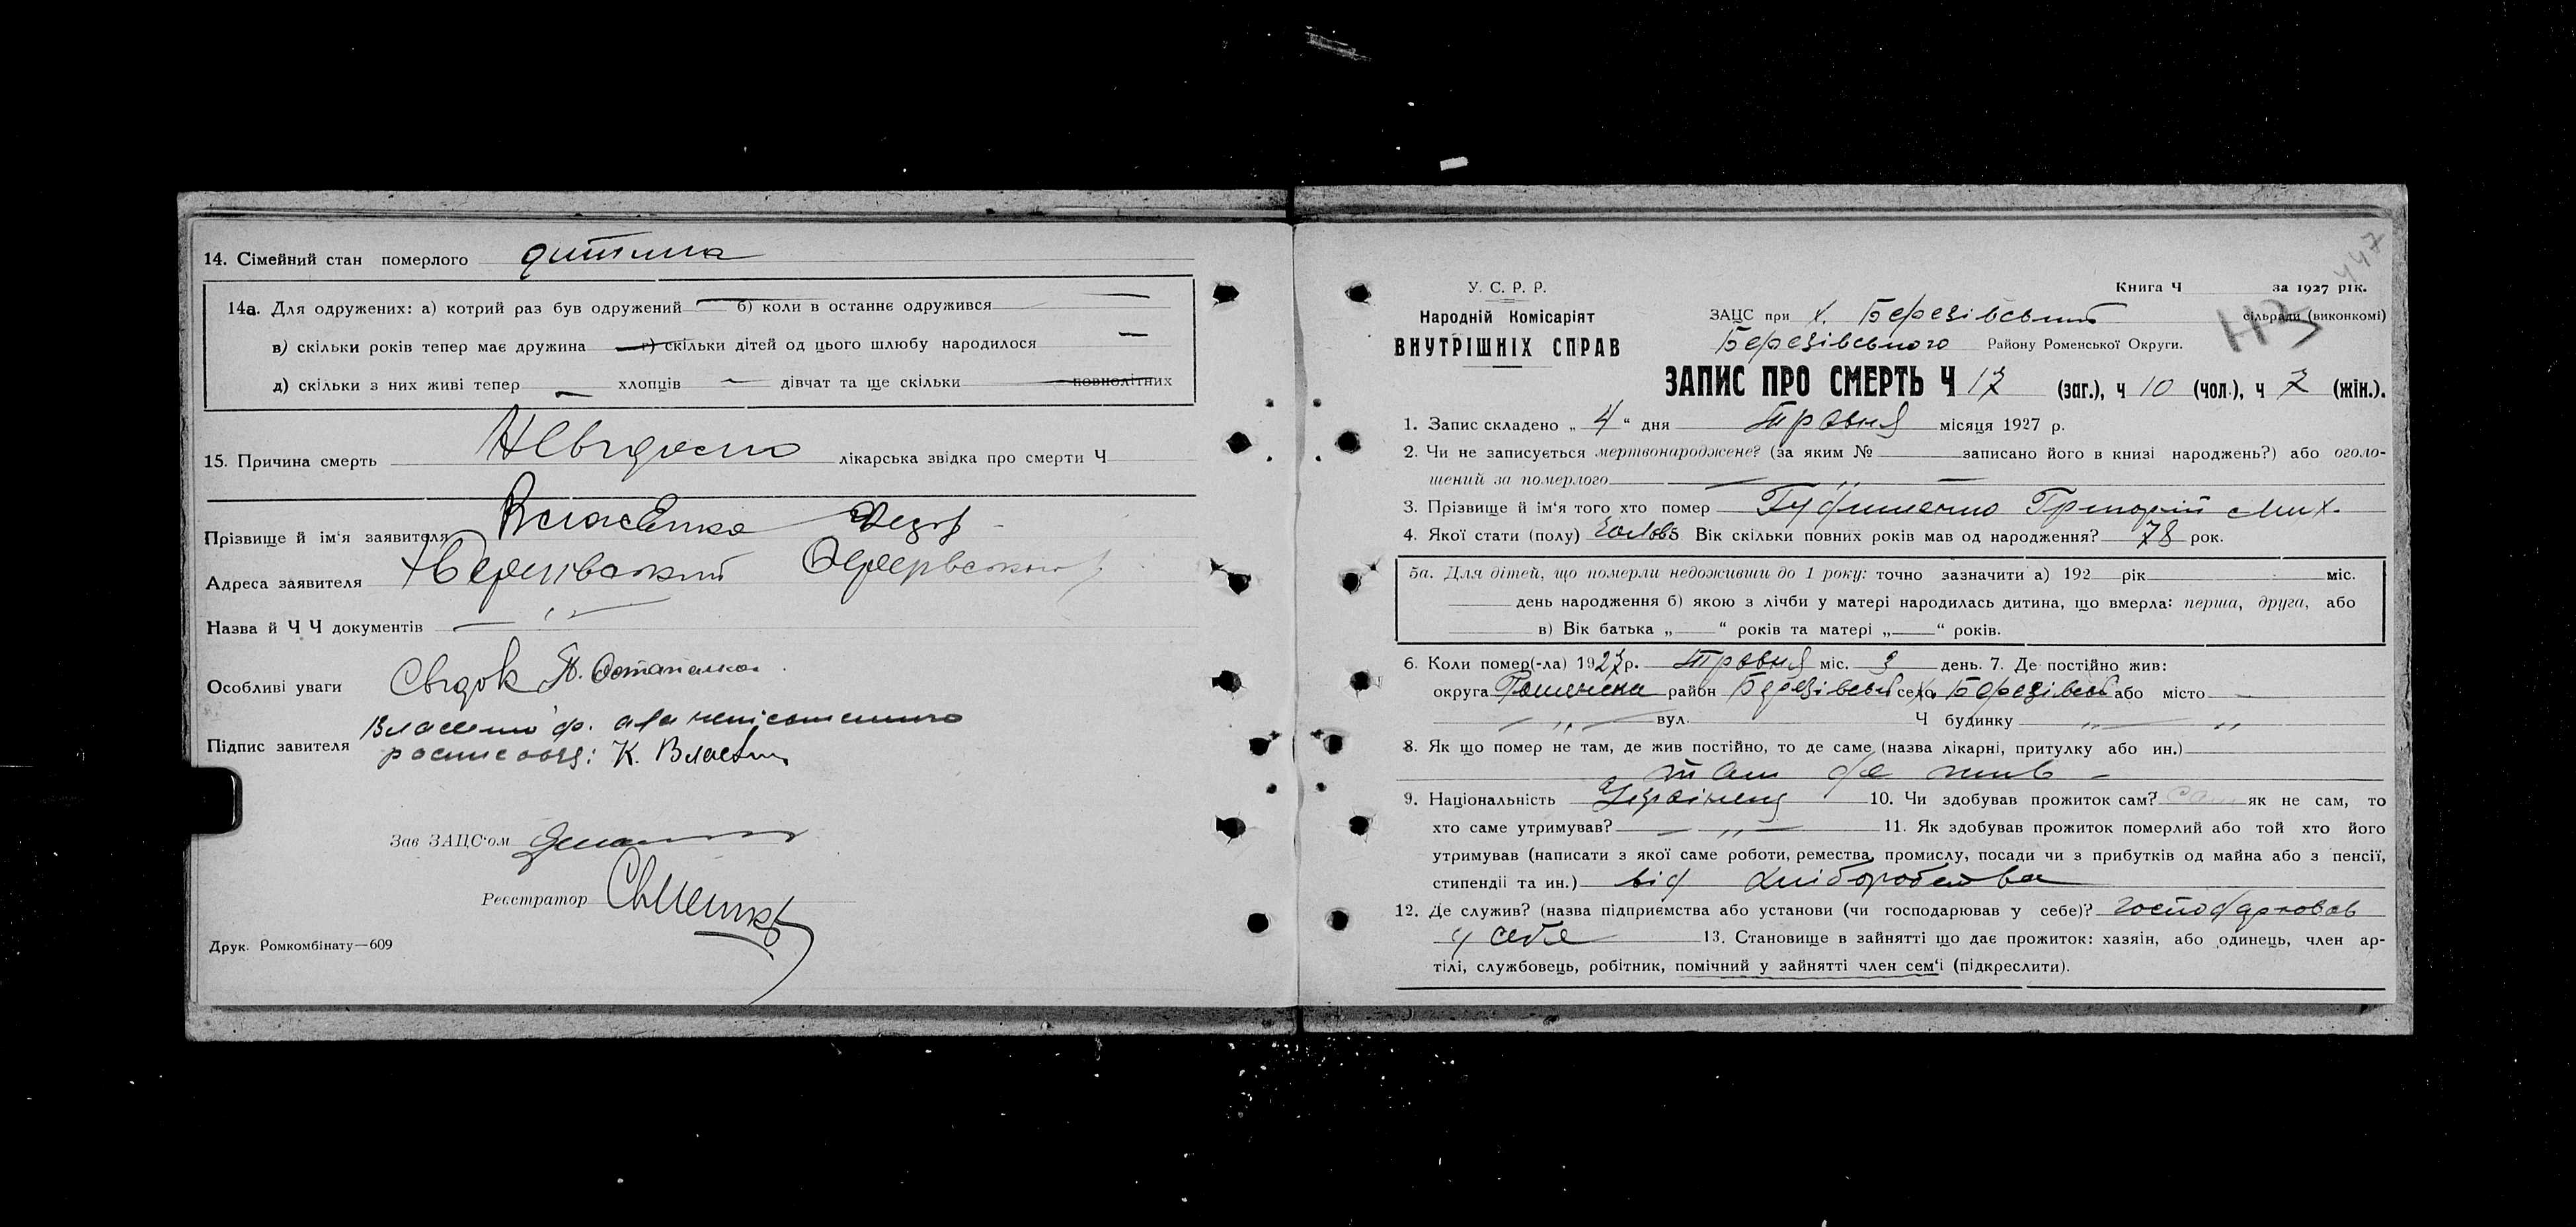 14. Сімейний стан померлого дитина
14а. Для одружених: а) котрий раз був одружений б) коли в останнє одружився
в) скільки років тепер має дружина г) скільки дітей од цього шлюбу народилося
д) скільки з них живі тепер хлопців дівчат та ще скільки повнолітних
15. Причина смерть Невідомо лікарська звідка про смерти Ч
Прізвище й ім'я заявителя Власенко
Адреса заявителя
Назва й Ч Ч документів
Особливі уваги Свідок
Підпис завителя
К. Власен
Зав ЗАЦС'ом
Реєстратор
Друк. Ромкомбінату—609
447
У. С. Р. Р.
Народній Комісаріят
ВНУТРІШНІХ СПРАВ
Книга Ч за 1927 рік.
ЗАЦС при х. Березівський сільради (виконкомі)
Березівського Району Роменської Округи.
ЗАПИС ПРО СМЕРТЬ Ч 17 (заг.), ч 10 (чол.), ч 7 (жін.).
1. Запис складено „ 4 “ дня Травня місяця 1927 р.
2. Чи не записується мертвонароджене? (за яким № записано його в книзі народжень?) або оголо-
шений за померлого
3. Прізвище й ім'я того хто помер Григорій Мих.
4. Якої стати (полу) Вік скільки повних років мав од народження? 78 рок.
5а. Для дітей, що померли недоживши до 1 року: точно зазначити а) 192 рік міс.
день народження б) якою з лічби у матері народилась дитина, що вмерла: перша, друга, або
в) Вік батька „ “ років та матері „ “ років.
6. Коли помер(-ла) 1927р. Травня міс. 3 день. 7. Де постійно жив:
округа Роменска район Березівськ село х. Березівськ або місто
вул. Ч будинку
8. Як що помер не там, де жив постійно, то де саме (назва лікарні, притулку або ин.)
там де жив
9. Національність Українець 10. Чи здобував прожиток сам? Сам як не сам, то
хто саме утримував? 11. Як здобував прожиток померлий або той хто його
утримував (написати з якої саме роботи, ремества, промислу, посади чи з прибутків од майна або з пенсії,
стипендії та ин.) від хліборобства
12. Де служив? (назва підприємства або установи (чи господарював у себе)? господарював
у себе 13. Становище в зайнятті що дає прожиток: хазяін, або одинець, член ар-
тілі, службовець, робітник, помічний у зайнятті член сем'ї (підкреслити).